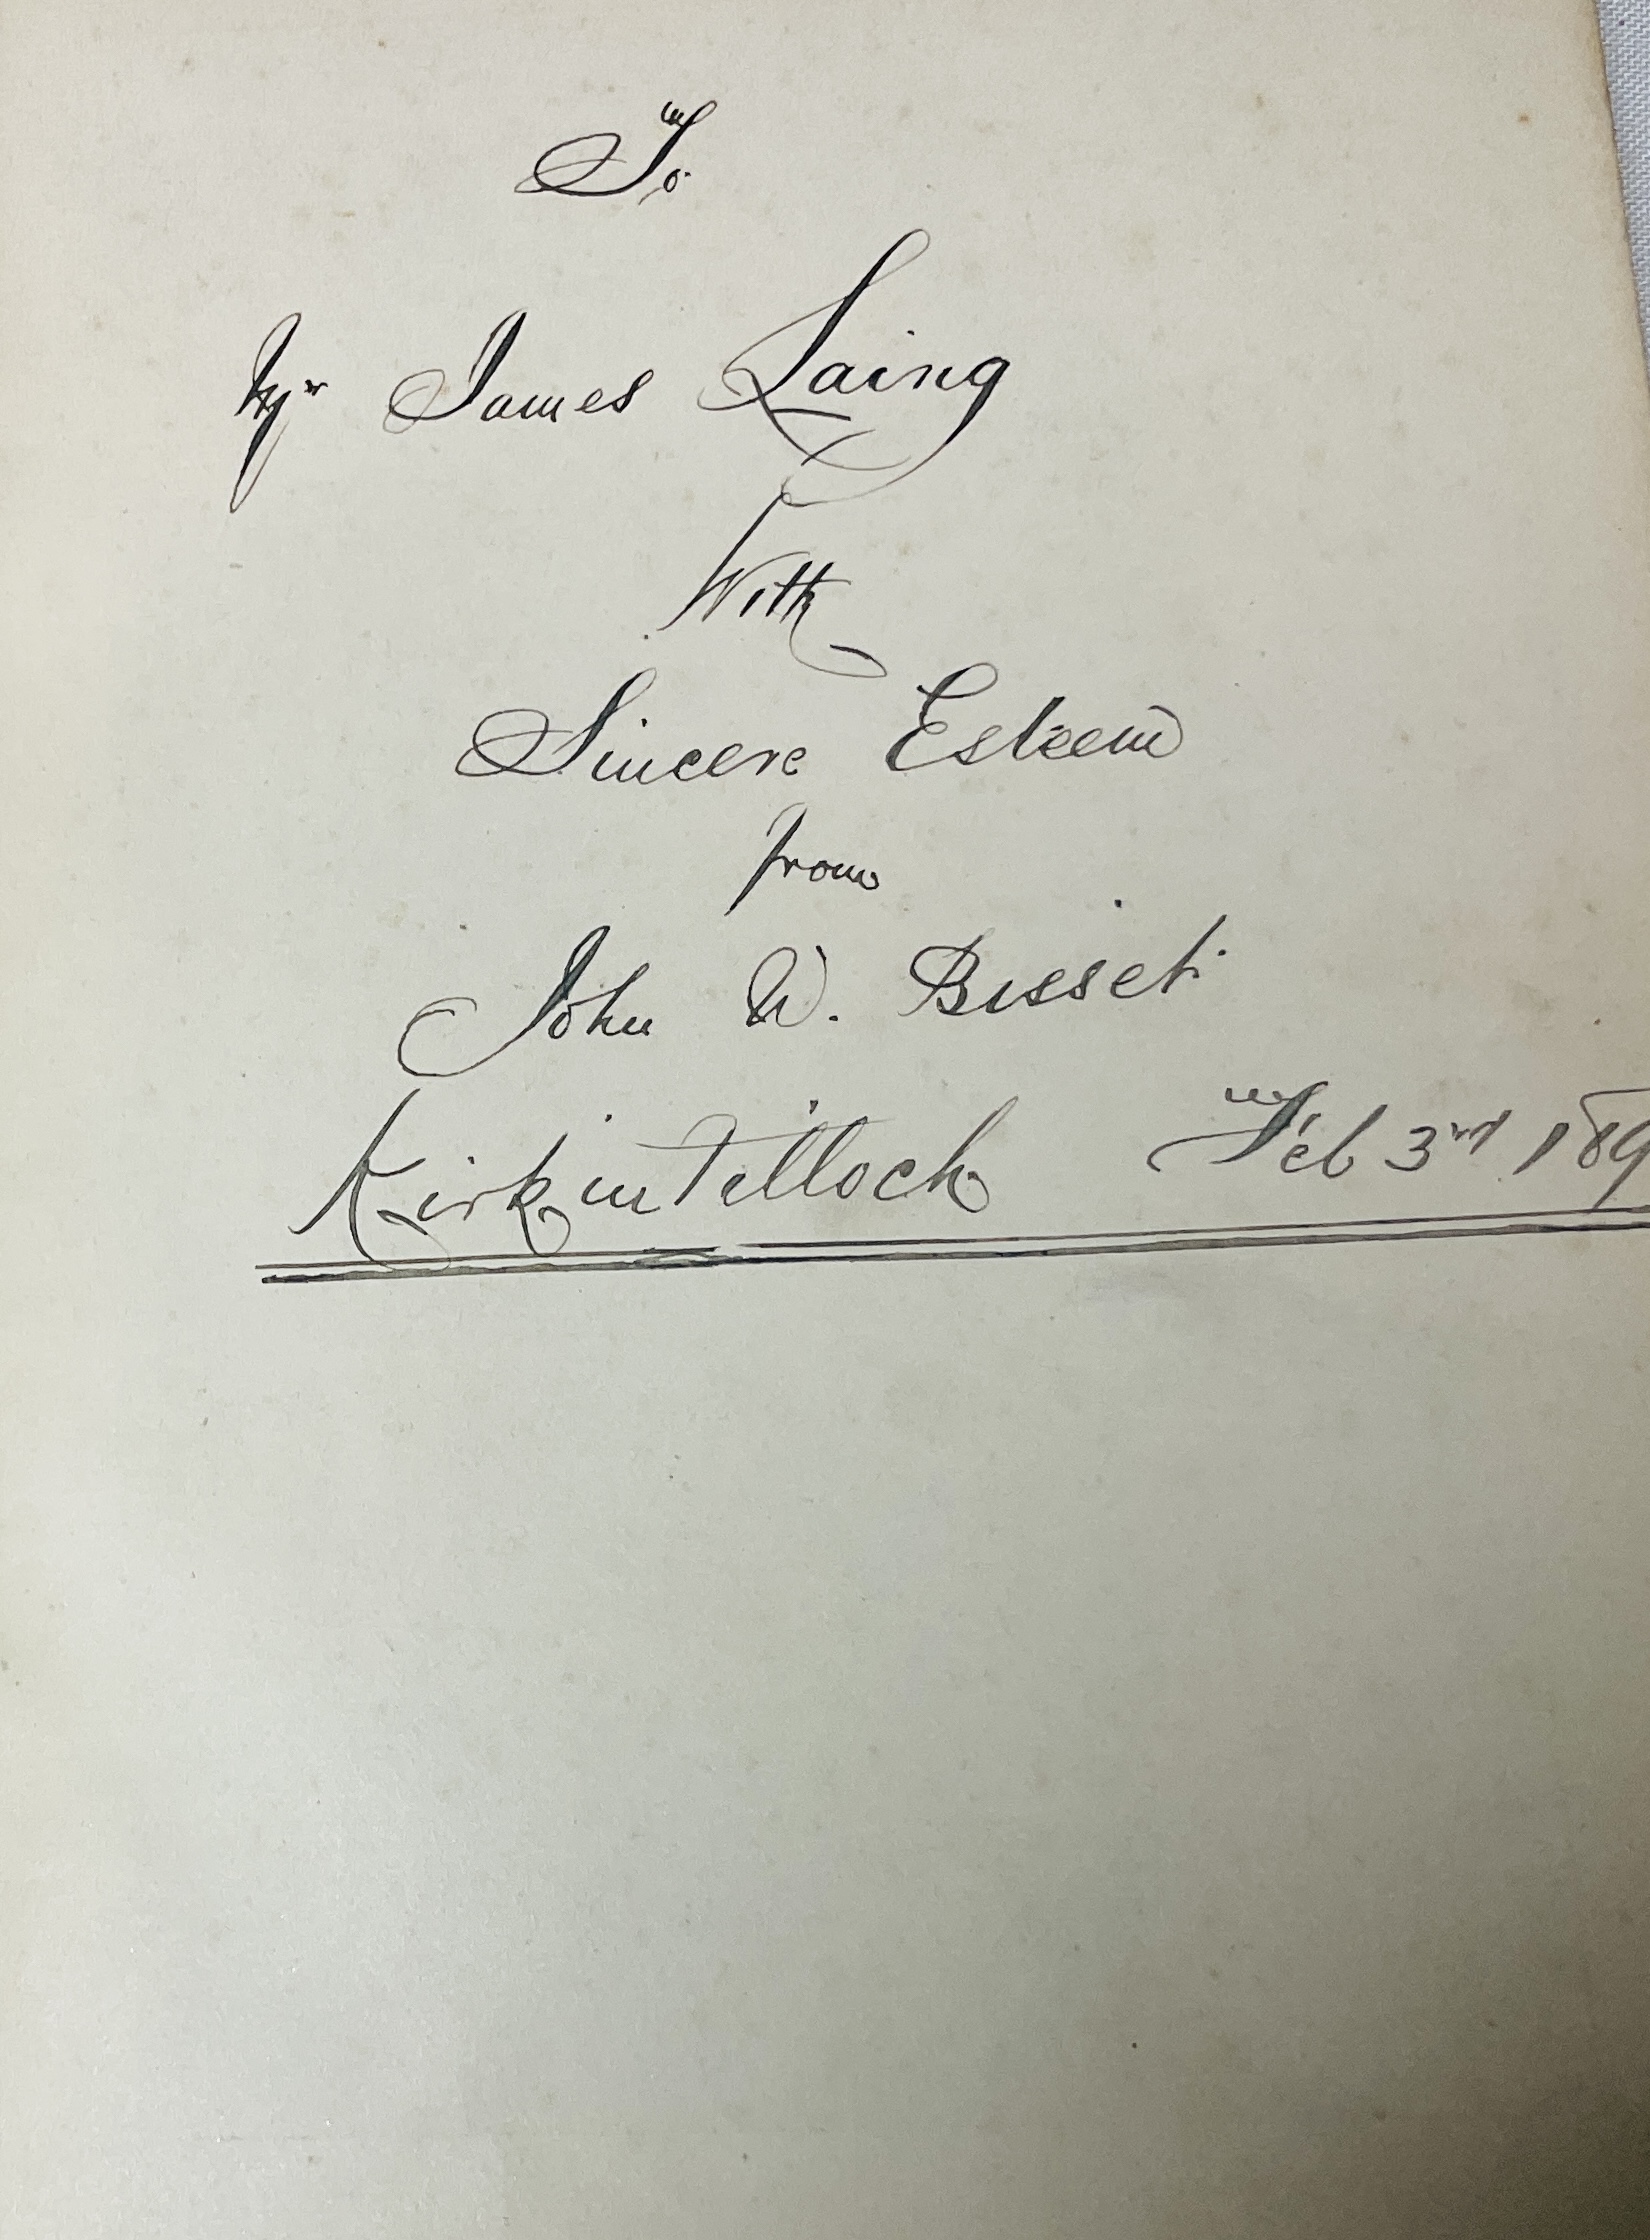 To
Mr James Laing
With
Sincere Esteem
from
John W. Bisset.
Kirkintilloch Feb 3rd 189